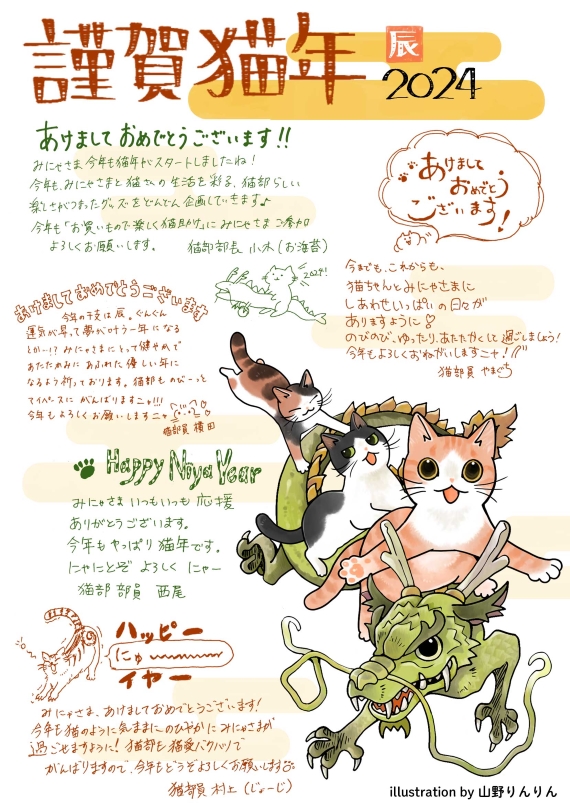 謹賀猫年
辰
2024
あけましておめでとうございます!!
みにゃさま今年も猫年がスタートしましたね!
今年も、みにゃさまと猫さんの生活を彩る、猫部らしい
楽しさがつまったグッズをどんどん企画していきます♪
今年も「お買いもので楽しく猫助け」にみにゃさまご参加
よろしくお願いします。
猫部部長 小木(お海苔)
あけまして
おめでとう
ございます!
2024!!
今までも、これからも、
猫ちゃんとみにゃさまに
しあわせいっぱいの日々が
ありますように♡
のびのび、ゆったり、あたたかくして過ごしましょう!
今年もよろしくおねがいしますニャ!
猫部員 やまぐち
あけましておめでとうございます
今年の干支は辰。ぐんぐん
運気が昇って夢が叶う一年になる
とか…!? みにゃさまにとって健やかで
あたたかみにあふれた優しい年に
なるよう祈っております。猫部ものびーっと
マイペースにがんばりますニャ!!!
今年もよろしくお願いしますニャ
猫部員 横田
Happy Nya Year
みにゃさまいつもいつも応援
ありがとうございます。
今年もやっぱり猫年です。
にゃにとぞよろしくにゃー
猫部部員 西尾
ハッピー
にゅ
イヤー
みにゃさま、あけましておめでとうございます!
今年も猫のように気ままにのびやかにみにゃさまが
過ごせますように!猫部も猫愛バクハツで
がんばりますので、今年もどうぞよろしくお願いします
猫部員 村上(じょーじ)
illustration by 山野りんりん